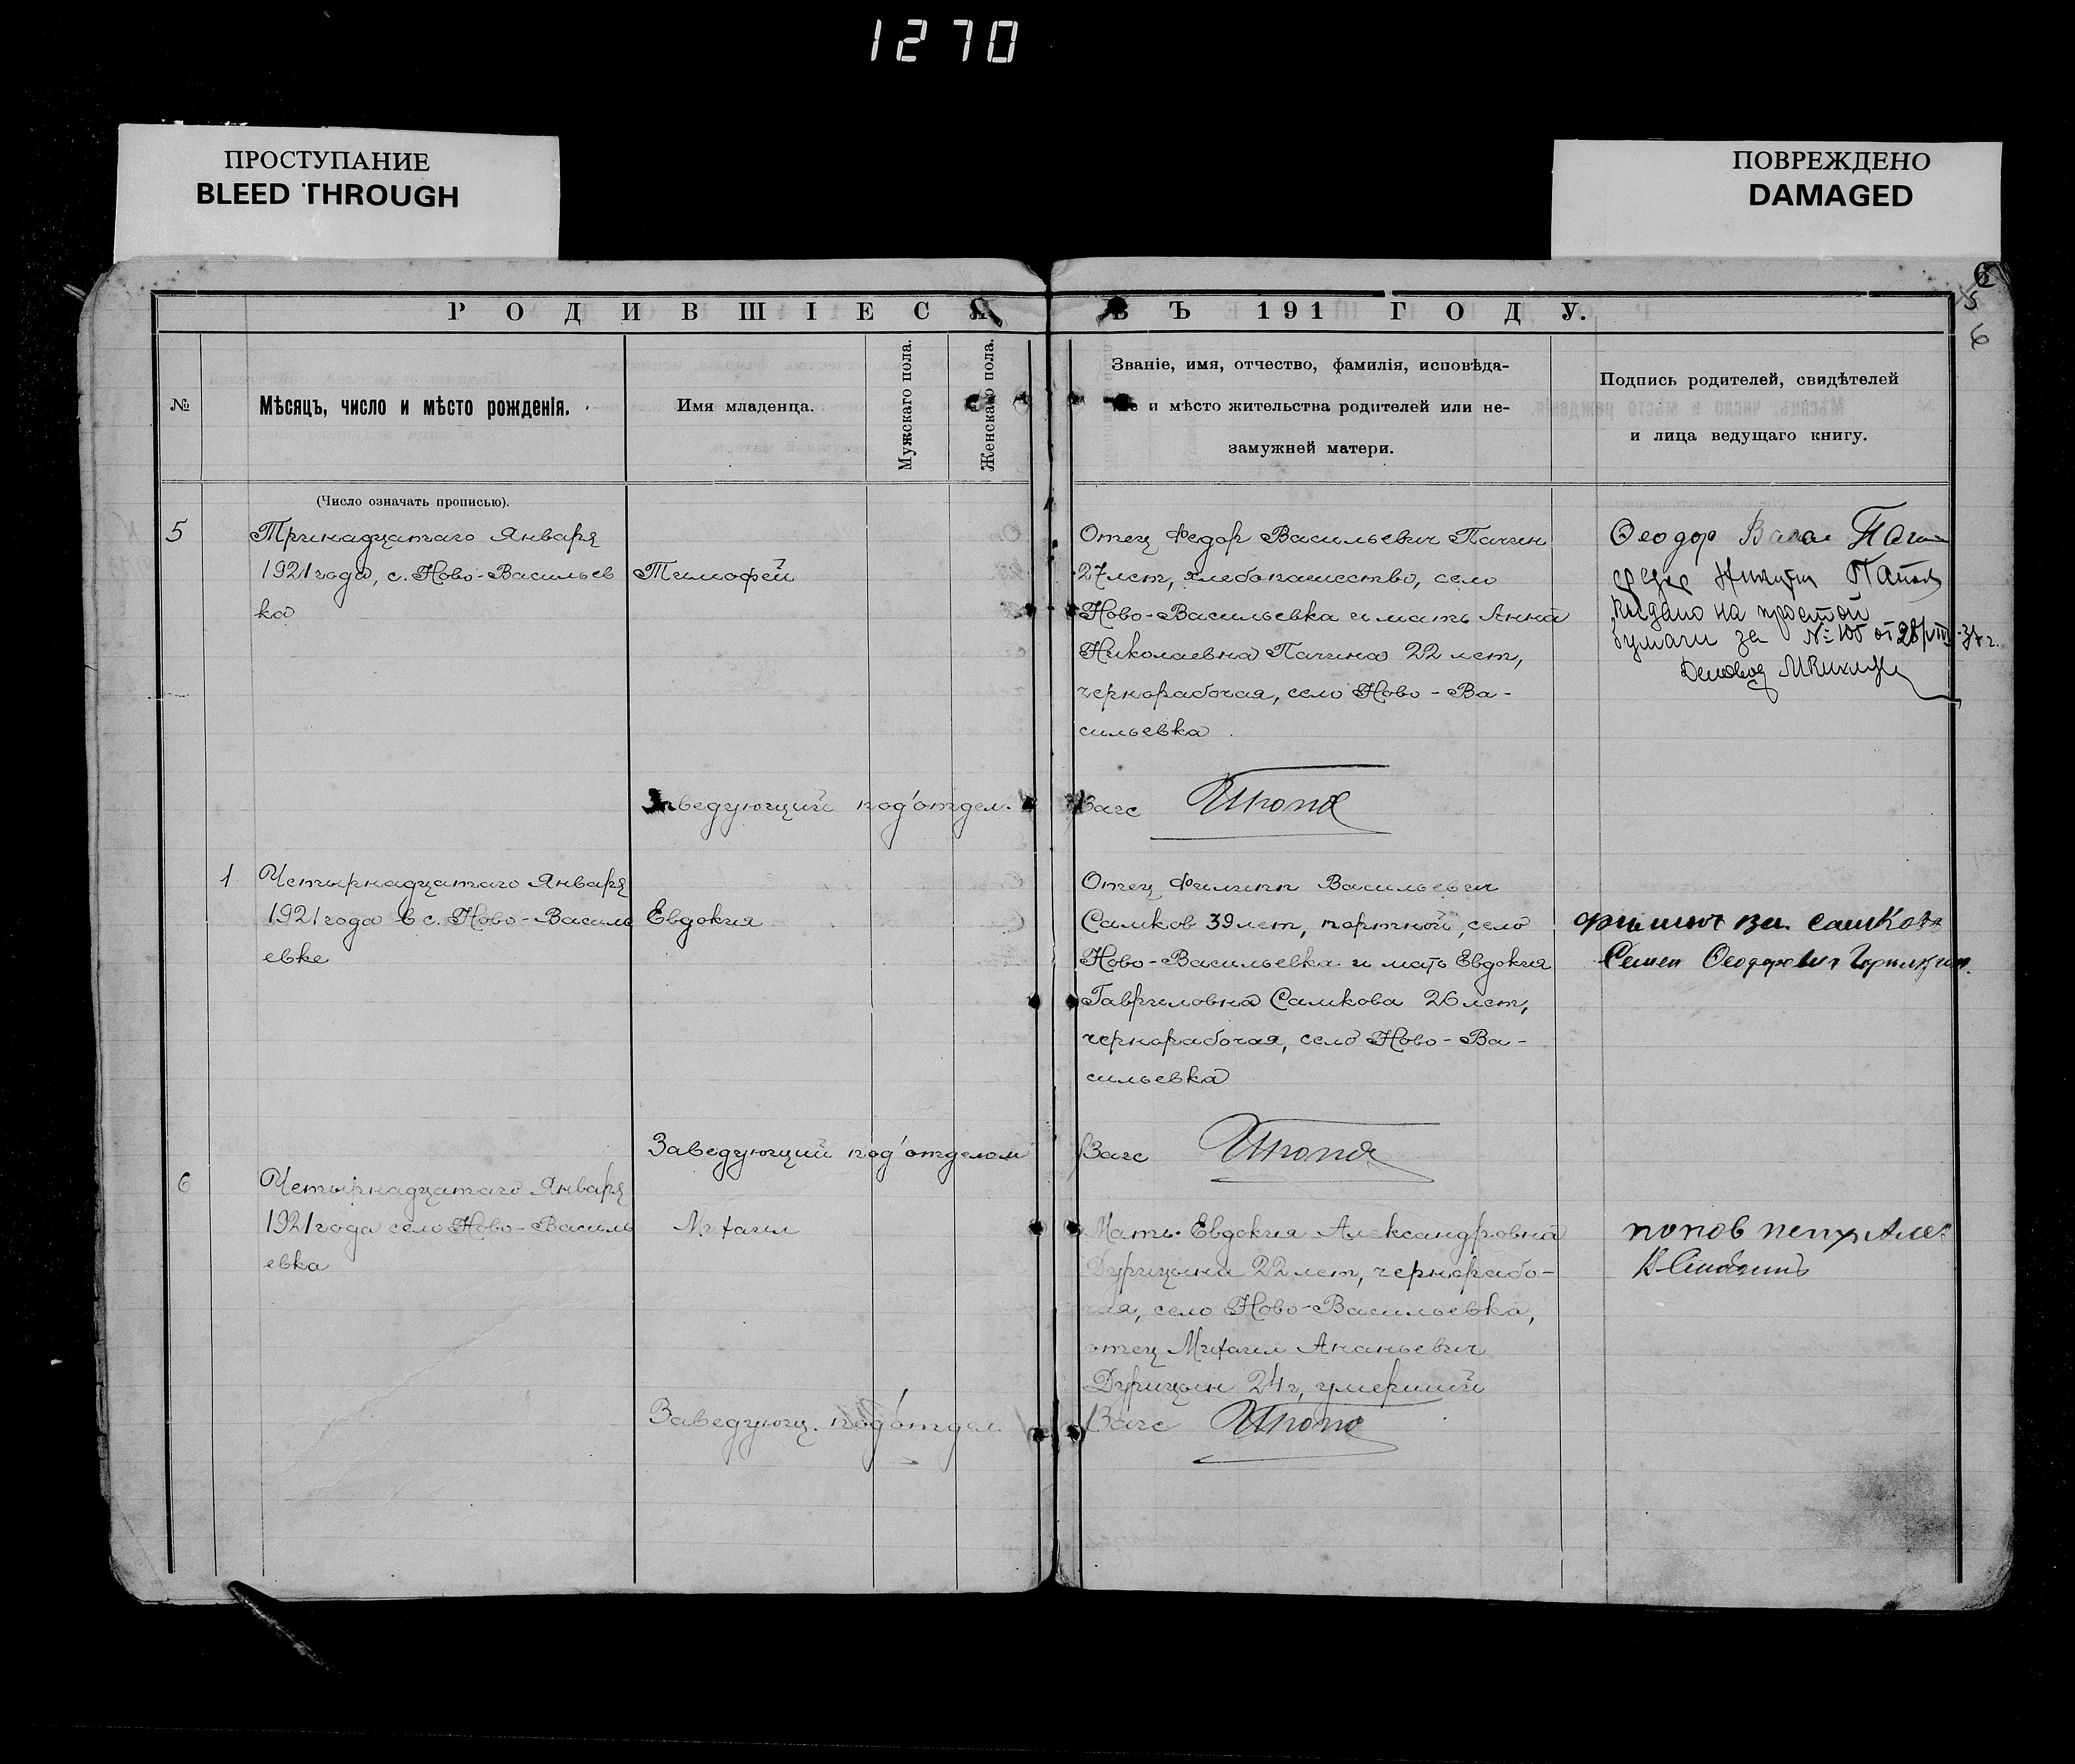 1270
ПРОСТУПАНИЕ
BLEED THROUGH
ПОВРЕЖДЕНО
DAMAGED
6
5
6
РОДИВШІЕСЯ ВЪ 191 ГОДУ.
№
Мѣсяцъ, число и мѣсто рожденія.
Имя младенца.
Мужскаго пола.
Женскаго пола.
Званіе, имя, отчество, фамилія, исповѣда-
и мѣсто жительства родителей или не-
замужней матери.
Подпись родителей, свидѣтелей
и лица ведущаго книгу.
(Число означать прописью).
5
Тринадцатаго Января
1921 года, с. Ново-Васильев
ка
Тимофей
Отец Федор Васильевич Пачин
27 лет, хлебопашество, село
Ново-Васильевка и мать Анна
Николаевна Пачина 22 лет,
чернорабочая, село Ново-Ва-
сильевка
Феодор
Никита
выдано на простой
бумаги за № 105 от 28/VIII-37г.
Заведующий под'отдел. Загс
1
Четырнадцатаго Января
1921 года в с. Ново-Василь
евке
Евдокия
Отец Филипп Васильевич
Самков 39 лет, портной, село
Ново-Васильевка и мать Евдокия
Гавриловна Самкова 26 лет,
чернорабочая, село Ново-Ва-
сильевка
Самкова
Семен Феодорович
Заведующий под'отделом Загс
6
Четырнадцатаго Января
1921 года село Ново-Василь
евка
Михаил
Мать Евдокия Александровна
Дурицына 22 лет, чернорабо-
чая, село Ново-Васильевка,
отец Михаил Ананьевич
Дурицын 24 г, умерший
попов петр Алек
Заведующ. под'отдел Загс